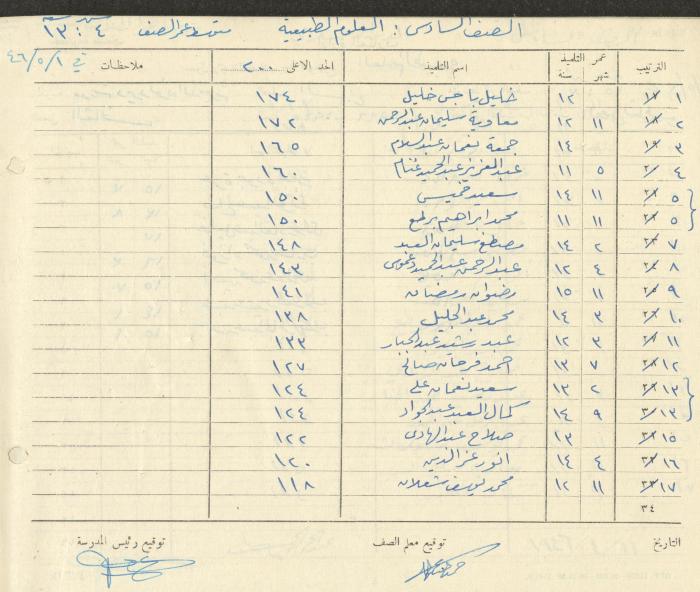 الصف السادس : العلوم الطبيعية متوسط عمر الصف ٤ : ١٣
في ٤٦/٥/١
الترتيب عمر التلميذ شهر سنة اسم التلميذ الحد الاعلى ٢٠٠ ملاحظات
١ ١٢ خليل ياجس خليل ١٧٤
٢ ١١ ١٢ معاوية سليمان عبد الرحمن ١٧٢
٣ ١٤ جمعة نعمان عبد السلام ١٦٥
٤ ٥ ١١ عبد العزيز عبد الحميد غنام ١٦٠
٥ ١١ ١٤ سعيد خميس ١٥٠
٥ ١١ ١١ محمد ابراهيم ١٥٠
٧ ٢ ١٤ مصطفى سليمان العبد ١٤٨
٨ ٤ ١٢ عبد الرحمن عبد الحميد ١٤٣
٩ ١١ ١٥ رضوان رمضان ١٤١
١٠ ٣ ١٤ محمد عبد الجليل ١٣٨
١١ ٣ ١٢ عبد رشيد عبد الجبار ١٣٣
١٢ ٧ ١٣ احمد فرحان صالح ١٢٧
١٣ ٢ ١٣ سعيد نعمان علي ١٢٤
١٣ ٩ ١٤ كمال العبد عبد الجواد ١٢٤
١٥ ١٣ صلاح عبد الهادي ١٢٢
١٦ ٤ ١٤ انور عز الدين ١٢٠
١٧ ١١ ١٢ محمد يوسف شعلان ١١٨
٣٤
التاريخ توقيع معلم الصف توقيع رئيس المدرسة